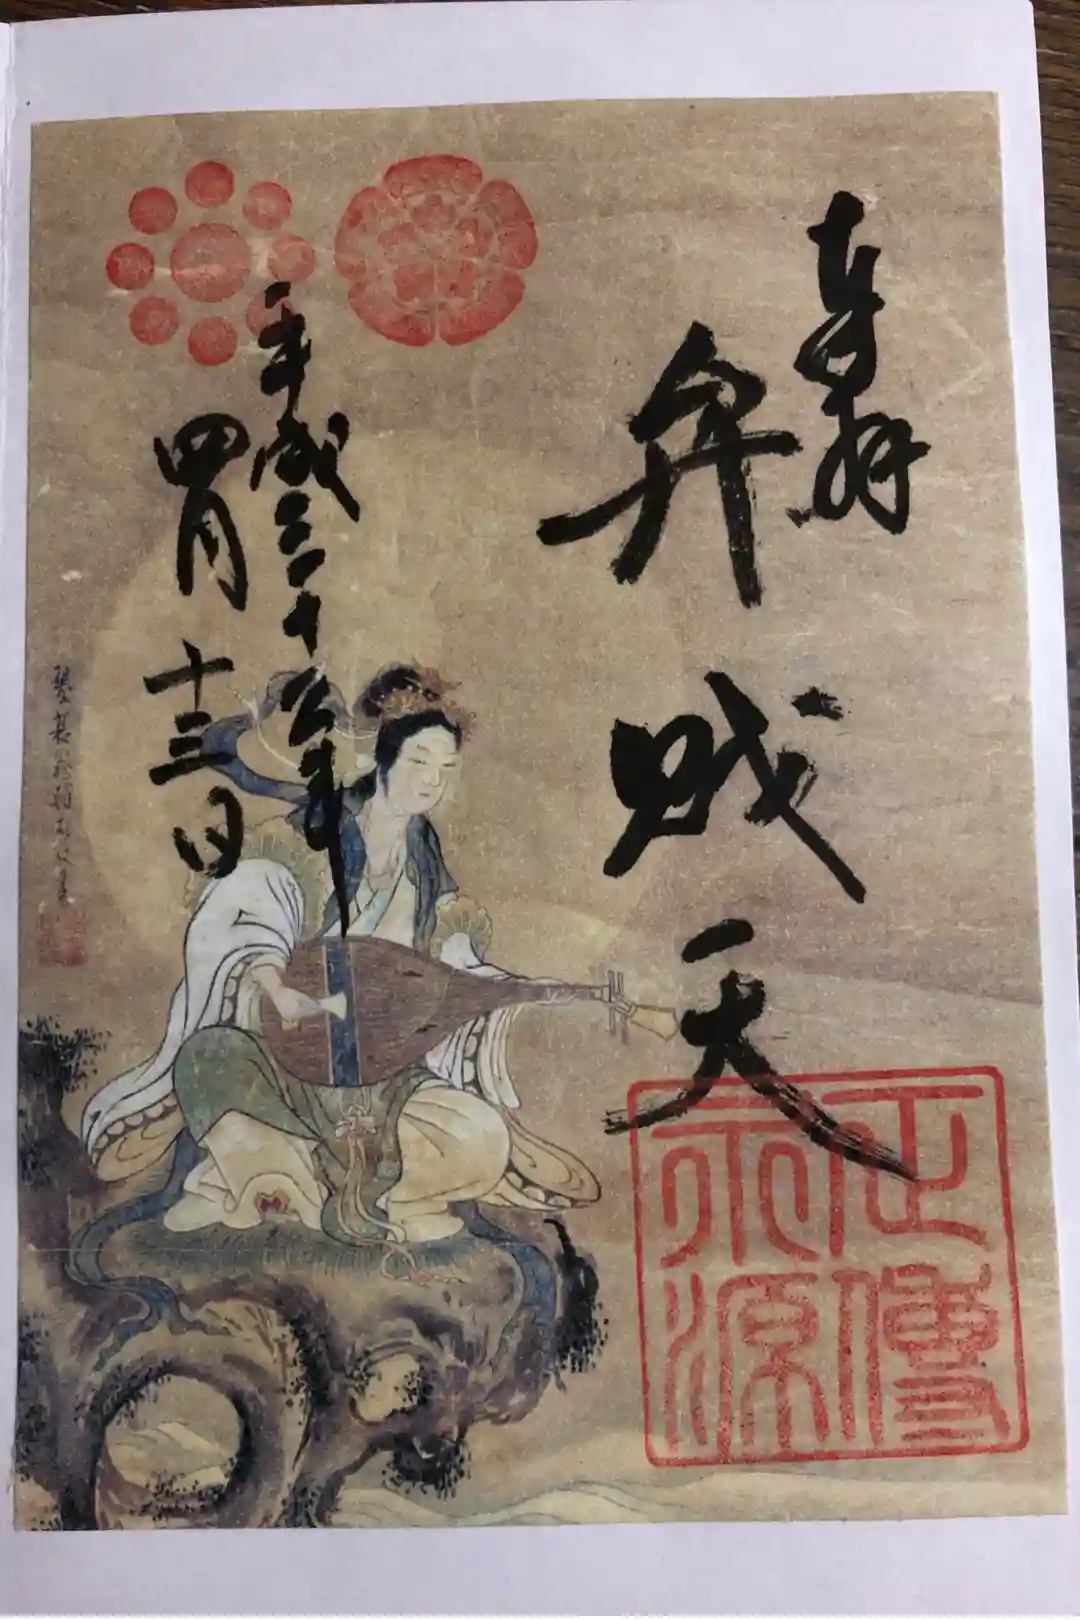 奉拝
弁戝天
平成三十一年
四月十三日
正傳
永源